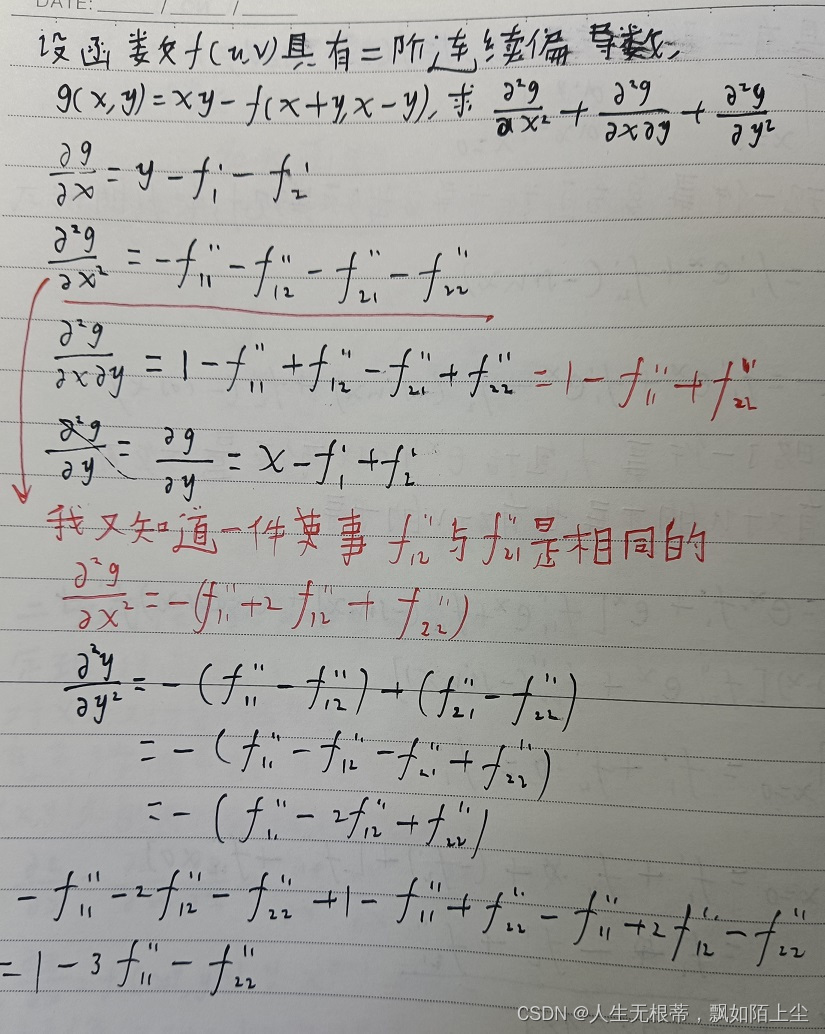 DATE:
设函数 f(u,v)具有二阶连续偏导数,
g(x,y)=xy-f(x+y,x-y), 求 ∂²g/∂x² + ∂²g/∂x∂y + ∂²g/∂y²
∂g/∂x = y - f₁' - f₂'
∂²g/∂x² = -f₁₁'' - f₁₂'' - f₂₁'' - f₂₂''
∂²g/∂x∂y = 1 - f₁₁'' + f₁₂'' - f₂₁'' + f₂₂'' = 1 - f₁₁'' + f₂₂''
∂²g/∂y = ∂g/∂y = x - f₁' + f₂'
我又知道一件事 f₁₂''与f₂₁''是相同的
∂²g/∂x² = -(f₁₁'' + 2f₁₂'' + f₂₂'')
∂²y/∂y² = -(f₁₁'' - f₁₂'') + (f₂₁'' - f₂₂'')
= -(f₁₁'' - f₁₂'' - f₂₁'' + f₂₂'')
= -(f₁₁'' - 2f₁₂'' + f₂₂'')
-f₁₁'' - 2f₁₂'' - f₂₂'' + 1 - f₁₁'' + f₂₂'' - f₁₁'' + 2f₁₂'' - f₂₂''
= 1 - 3f₁₁'' - f₂₂''
CSDN @人生无根蒂，飘如陌上尘